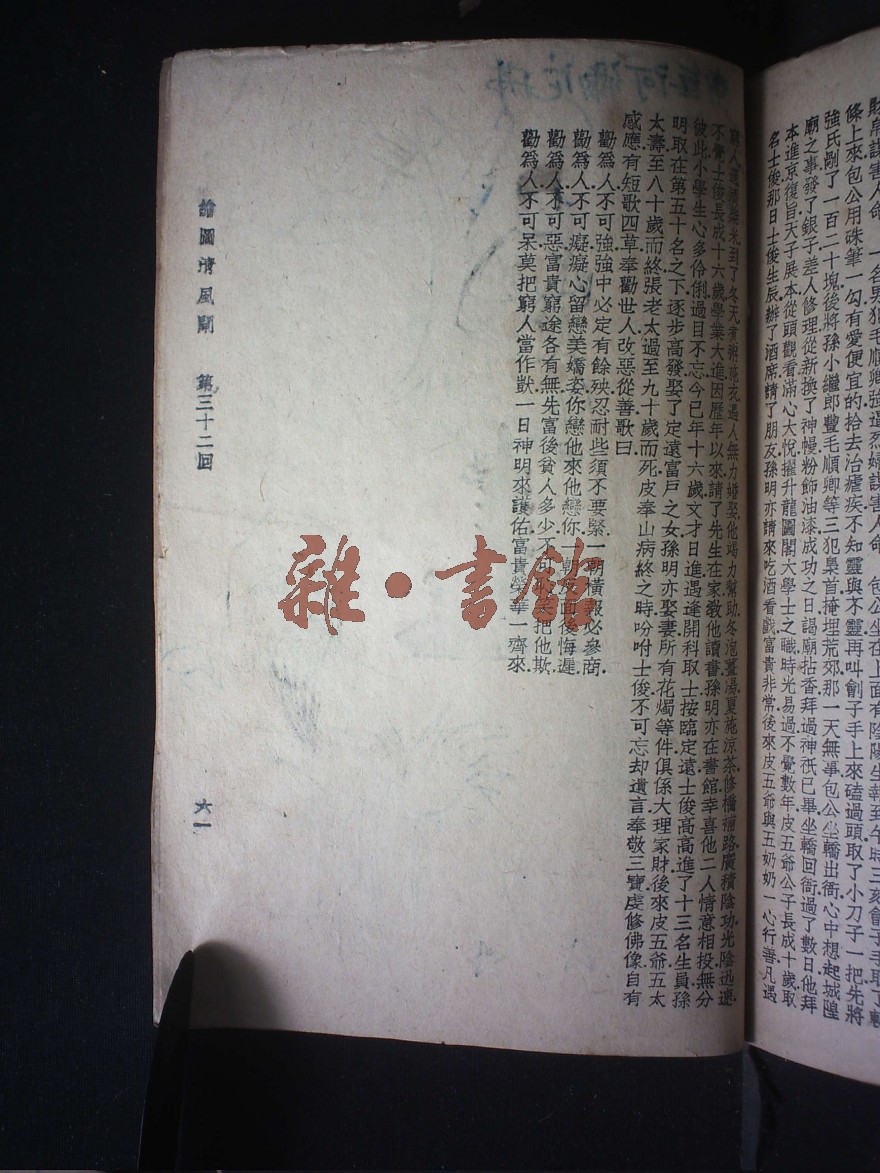 財帛謀害人命一名男犯毛順卿強逼烈婦謀害人命包公坐在上面有陰陽生報到午時三亥會子手取了
條上來包公用硃筆一勾有愛便宜的拾去治瘧疾不知靈與不靈再叫劊子手上來磕過頭取了小刀子一把先將
強氏剮了一百二十塊後將孫小繼郎豐毛順卿等三犯梟首掩埋荒郊那一天無事包公坐轎出衙心中想起城隍
廟之事發了銀子差人修理從新換了神幔粉飾油漆成功之日謁廟拈香拜過神祇已畢坐轎回衙過了數日他拜
本進京復旨天子展本從頭觀看滿心大悅擢升龍圖閣大學士之職時光易過不覺數年皮五爺公子長成十歲取
名士俊那日士俊生辰辦了酒席請了朋友孫明亦請來吃酒看戲富貴非常後來皮五爺與五奶奶一心行善凡遇
窮人米到了冬天煮粥施衣遇人無力婚娶他竭力幫助冬泡薑湯夏施涼茶修橋補路廣積陰功光陰迅速
不覺士俊長成十六歲學業大進因歷年以來請了先生在家敎他讀書孫明亦在書館幸喜他二人情意相投無分
彼此小學生心多伶俐過目不忘今已年十六歲文才日進遇逢開科取士按臨定遠士俊高高進了十三名生員孫
明取在第五十名之下逐步高發娶了定遠富戶之女孫明亦娶妻所有花燭等件俱係大理家財後來皮五爺五太
太壽至八十歲而終張老太過至九十歲而死皮奉山病終之時吩咐士俊不可忘却遺言奉敬三寶虔修佛像自有
感應有短歌四草奉勸世人改惡從善歌曰
勸爲人不可強強中必定有餘殃忍耐些須不要緊一朝橫報必參商
勸爲人不可癡癡心留戀美嬌姿你戀他來他戀你一朝反面後悔遲
勸爲人不可惡富貴窮途各有無先富後貧人多少不可把他欺
勸爲人不可呆莫把窮人當作獃一日神明來護佑富貴榮華一齊來
繪圖清風閘 第三十二回
六一
阿彌陀佛
雜·書館